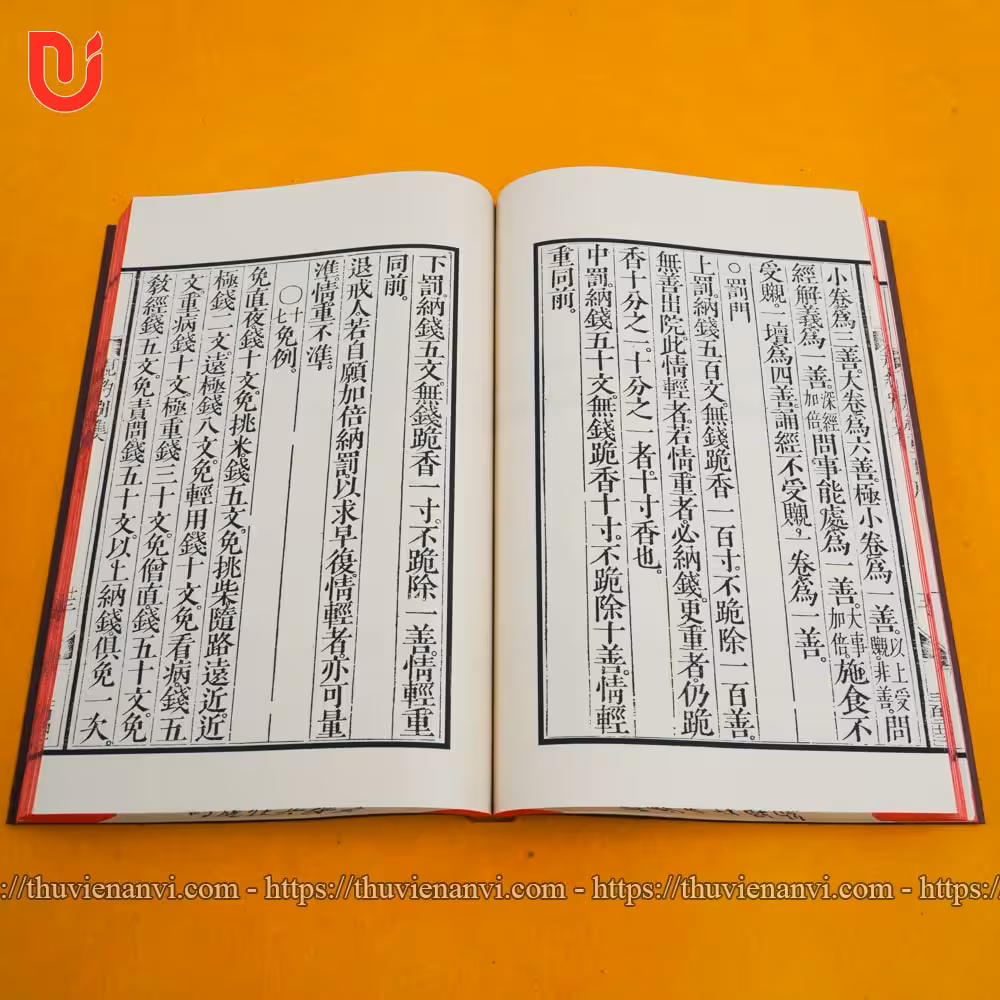 小卷爲三善。大卷爲六善。極小卷爲一善。以上受䞋。非善。問
經解義爲一善。深經加倍問事能處爲一善。大事加倍。施食不
受䞋。一壇爲四善誦經不受䞋。一卷爲一善。
○罰門
上罰。納錢五百文。無錢跪香一百寸。不跪除一百善。
無善出院。此情輕者。若情重者。必納錢。更重者。仍跪
香十分之一。十分之一者。十寸香也。
中罰。納錢五十文。無錢跪香十寸。不跪除十善。情輕
重同前。
下罰。納錢五文。無錢跪香一寸。不跪除一善。情輕重
同前。
退戒人若自願加倍納罰以求早復。情輕者。亦可量
准。情重不准。
○十七免例。
免直夜錢十文。免挑米。錢五文。免挑柴隨路遠近。近
極錢一文。遠極錢八文。免輕用。錢十文。免看病。錢五
文。重病錢十文。極重錢三十文。免僧直錢五十文。免
教經錢五文。免責問錢五十文。以上納錢。俱免一次。
://thuvienanvi.com - https://thuvienanvi.com - https://thuvienanvi.com - https://